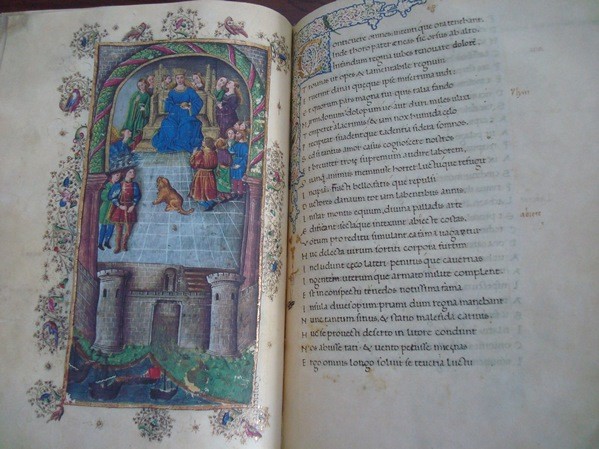 Conticuere omnes intentique ora tenebant
Inde thoro pater eneas sic orsus ab alto
Infandum regina iubes renouare dolorē
Troianas ut opes & lamentabile regnum
Eruerint danai queque ipse miserrima uidi
Et quorum pars magna fui quis talia fando
Mirmidonum dolopum ue aut duri miles ulixi
Temperet a lacrimis & iam nox humida celo
Precipitat suadentque cadentia sidera somnos
Sed si tantus amor casus cognoscere nostros
Et breuiter troie supremum audire laborem
animus meminisse horret Luctuque refugit
Incipiam fracti bello fatisque repulsi
Ductores danaum tot iam labentibus annis
Instar montis equum diuina palladis arte
Edificant sectaque intexunt abiete costas
Votum pro reditu simulant ea fama uagatur
Huc delecta uirum sortiti corpora furtim
Includunt ceco lateri penitusque cauernas
Ingentis uterumque armato milite complent
Est in conspectu tenedos notissima fama
Insula diues opum priami dum regna manebant
Nunc tantum sinus & statio malefida carinis
Huc se prouecti deserto in litore condunt
Nos abiisse rati & uento petiisse micenas
Ergo omnis longo soluit se teucria luctu